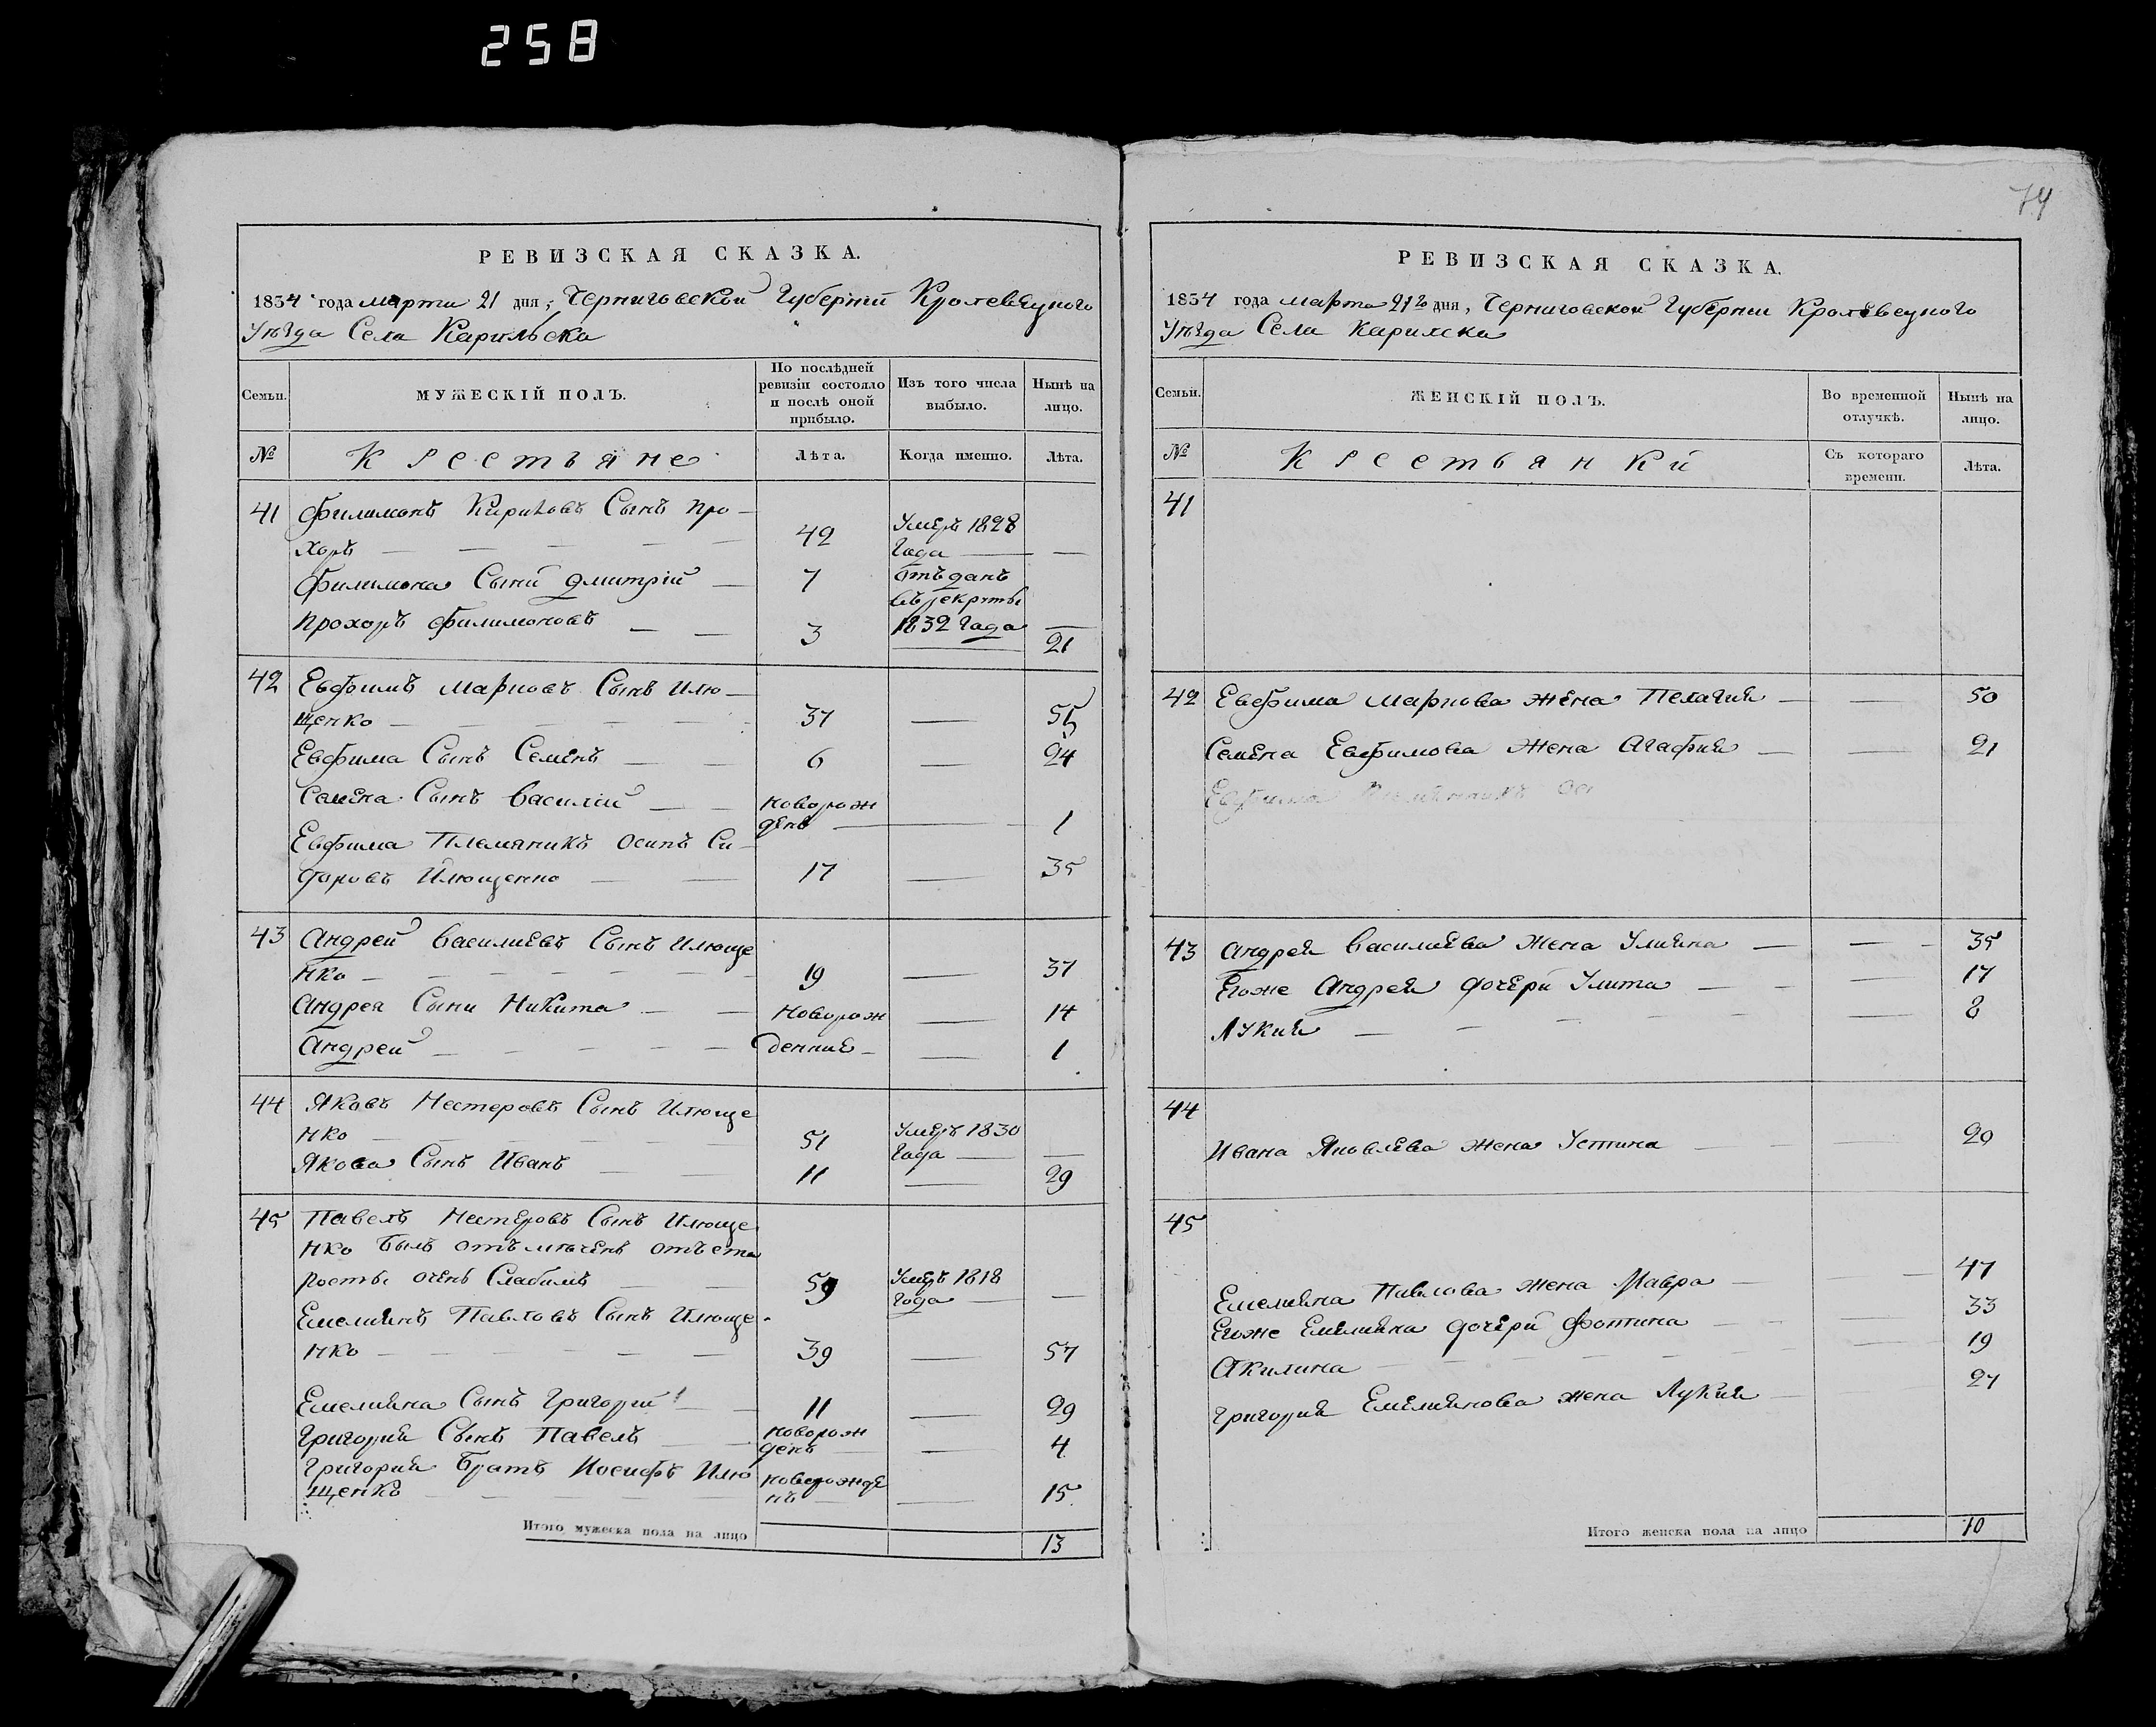 258
74
РЕВИЗСКАЯ СКАЗКА.
1834 года марта 21 дня, Черниговской Губернии Кролевецкого
Уѣзда Села Карильска
Семьи. МУЖЕСКІЙ ПОЛЪ. По послѣдней ревизіи состояло и послѣ оной прибыло. Изъ того числа выбыло. Нынѣ на лицо.
№ Крестьяне Лѣта. Когда именно. Лѣта.
41 Филимонъ Кириловъ Сынъ Про-
хоръ 42 Умеръ 1828 Года —
Филимона Сыни Дмитрій 7 Отъданъ въ рекруты 1832 Года —
Прохоръ Филимоновъ 3 21
42 Евфимъ Марковъ Сынъ Илю-
щенко 37 — 55
Евфима Сынъ Семенъ 6 — 24
Семена Сынъ Василій новорож
денъ — 1
Евфима Племяникъ Осипъ Си-
доровъ Илющенко 17 — 35
43 Андрей Василиевъ Сынъ Илюще
нко 19 — 37
Андрея Сыни Никита Новорож — 14
Андрей денние — 1
44 Яковъ Нестеровъ Сынъ Илюще
нко 51 Умеръ 1830 Года —
Якова Сынъ Иванъ 11 — 29
45 Павелъ Нестеровъ Сынъ Илюще
нко Былъ отъмѣченъ отъста
рости очень Слабимъ 59 Умеръ 1818 Года —
Емелиянъ Павловъ Сынъ Илюще
нко 39 — 57
Емелияна Сынъ Григорий 11 — 29
Григория Сынъ Павелъ новорож
денъ — 4
Григория Братъ Иосифъ Илю новорожде
щенко нъ — 15
Итого мужеска пола на лицо 13
РЕВИЗСКАЯ СКАЗКА.
1834 года марта 21го дня, Черниговской Губернии Кролевецкого
Уѣзда Села Карилска
Семьи. ЖЕНСКІЙ ПОЛЪ. Во временной отлучкѣ. Нынѣ на лицо.
№ Крестьянки Съ котораго времени. Лѣта.
41
42 Евфима Маркова жена Пелагия — 50
Семена Евфимова Жена Агафия — 21
Евфима Племянникъ Ос
43 Андрея Василиева Жена Улияна — 35
Егоже Андрея дочери Улита — 17
Лукия — 8
44
Ивана Яковлева жена Устина — 29
45
Емелияна Павлова жена Мавра — 47
Егоже Емелияна дочери Фотина — 33
Акилина — 19
Григория Емелиянова жена Лукия — 27
Итого женска пола на лицо 10